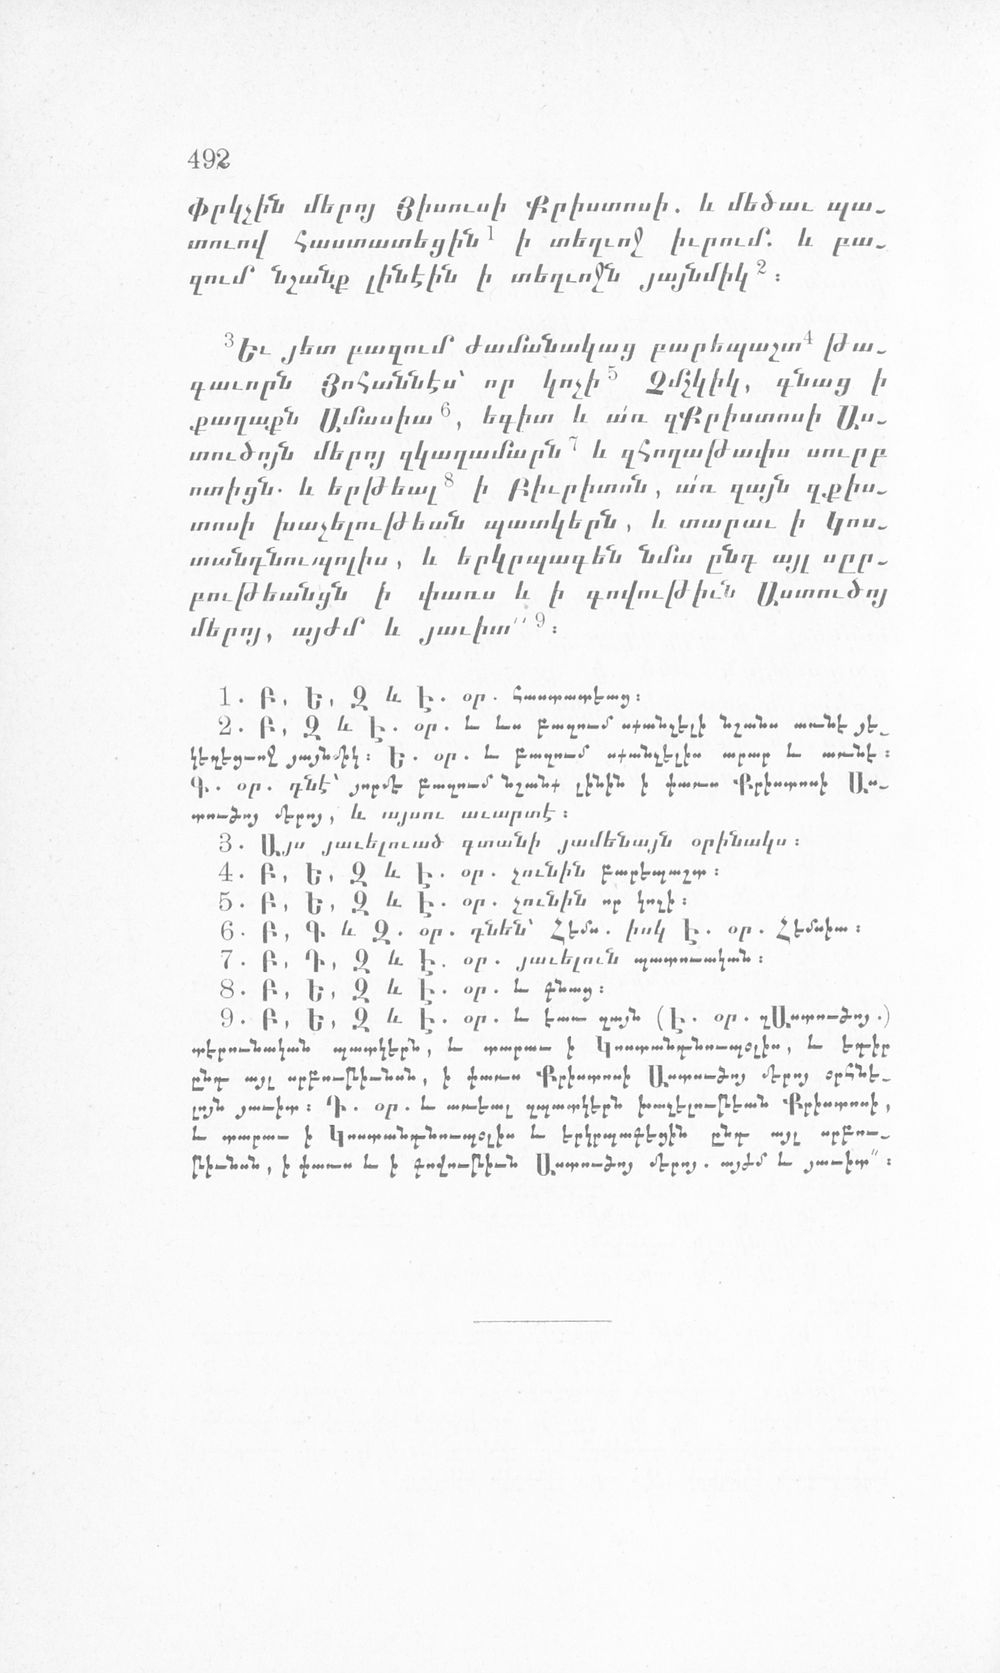 492
Փրկչին մերոյ Յիսուսի Քրիստոսի. և մեծաւ պա-
տուով հաստատեցին¹ ի տեղւոջ իւրում. և բա-
զում նշանք լինէին ի տեղւոջն յայնմիկ²։
³Եւ յետ բազում ժամանակաց բարեպաշտ⁴ թա-
գաւորն Յոհաննէս՝ որ կոչի⁵ Չմշկիկ, գնաց ի
քաղաքն Ամասիա⁶, եգիտ և ա՛ռ զՔրիստոսի Աս-
տուծոյն մերոյ զկաղամարն⁷ և զհողաթափս սուրբ
ոտիցն. և երթեալ⁸ ի Բիւրիտոն, ա՛ռ զայն զքիս-
տոսի խաչելութեան պատկերն, և տարաւ ի Կոս-
տանդնուպոլիս, և երկրպագեն նմա ընդ այլ սըր-
բութեանցն ի փառս և ի գովութիւն Աստուծոյ
մերոյ, այժմ և յաւիտ՛՛⁹։
1. Բ, Ե, Զ և Է. օր. հաստատեաց։
2. Բ, Զ և Է. օր. և ևս բազում սքանչելի նշանս առնէ յե-
կեղեցւոջ յայնմիկ։ Ե. օր. և բազում սքանչելիս արար և առնէ։
Գ. օր. դնէ՝ յորմէ բազում նշանք լինին ի փառս Քրիստոսի Աս-
տուծոյ մերոյ, և այսու աւարտէ։
3. Այս յաւելուած գտանի յամենայն օրինակս։
4. Բ, Ե, Զ և Է. օր. չունին բարեպաշտ։
5. Բ, Ե, Զ և Է. օր. չունին որ կոչի։
6. Բ, Գ և Զ. օր. դնեն՝ Հէմս. իսկ Է. օր. Հէմսիա։
7. Բ, Դ, Զ և Է. օր. յաւելուն պատուական։
8. Բ, Ե, Զ և Է. օր. և գնաց։
9. Բ, Ե, Զ և Է. օր. և էառ զայն (Է. օր. զԱստուծոյ.)
տէրունական պատկերն, և տարաւ ի Կոստանդնուպօլիս, և եդիր
ընդ այլ սրբութիւնսն, ի փառս Քրիստոսի Աստուծոյ մերոյ օրհնե-
լոյն յաւիտ։ Դ. օր. և առեալ զպատկերն խաչելութեան Քրիստոսի,
և տարաւ ի Կոստանդնուպօլիս և երկրպագեցին ընդ այլ սրբու-
թիւնսն, ի փառս և ի գովութիւն Աստուծոյ մերոյ. այժմ և յաւիտ՛՛։